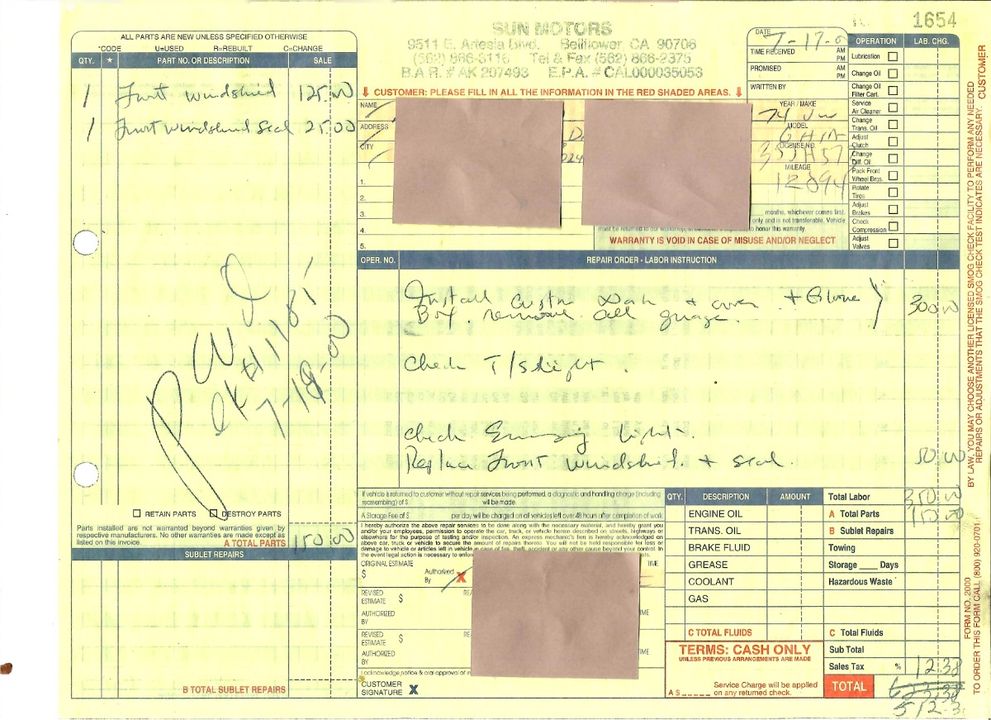 SUN MOTORS
9511 E. Artesia Blvd. Bellflower, CA 90706
(562) 866-3116 Tel & Fax (562) 866-2375
B.A.R. # AK 207493 E.P.A. # CAL000035053
1654
ALL PARTS ARE NEW UNLESS SPECIFIED OTHERWISE
*CODE U=USED R=REBUILT C=CHANGE
QTY. ★ PART NO. OR DESCRIPTION SALE
1 Front windshield 125.00
1 Front windshield seal 25.00
DATE 7-17-0
TIME RECEIVED AM PM
PROMISED AM PM
WRITTEN BY
CUSTOMER: PLEASE FILL IN ALL THE INFORMATION IN THE RED SHADED AREAS.
NAME
ADDRESS
CITY
1.
2.
3.
4.
5.
YEAR / MAKE
74 VW
MODEL
GHIA
LICENSE NO.
MILEAGE
12094
months, whichever comes first.
only and is not transferable. Vehicle
to honor this warranty.
WARRANTY IS VOID IN CASE OF MISUSE AND/OR NEGLECT
OPERATION LAB. CHG.
Lubrication
Change Oil
Change Oil Filter Cart.
Service Air Cleaner
Change Trans. Oil
Adjust Clutch
Change Diff. Oil
Pack Front Wheel Brgs.
Rotate Tires
Adjust Brakes
Check Compression
Adjust Valves
OPER. NO. REPAIR ORDER - LABOR INSTRUCTION
Install Custom Dash + cover + Glove
Box. remove all guage 300.00
Check T/slight.
Check Emergy light.
Replace Front windshield. + seal 50.00
PAID
CK# 1181
7-18-00
RETAIN PARTS DESTROY PARTS
Parts installed are not warranted beyond warranties given by
respective manufacturers. No other warranties are made except as
listed on this invoice.
A TOTAL PARTS 150.00
SUBLET REPAIRS
B TOTAL SUBLET REPAIRS
If vehicle is returned to customer without repair services being performed, a diagnostic and handling charge (including
reassembling) of $ will be made.
A Storage Fee of $ per day will be charged on all vehicles left over 48 hours after completion of work.
I hereby authorize the above repair services to be done along with the necessary material, and hereby grant you
and/or your employees, permission to operate the car, truck or vehicle herein described on streets, highways or
elsewhere for the purpose of testing and/or inspection. An express mechanic's lien is hereby acknowledged on
above car, truck or vehicle to secure the amount of repairs thereto. You will not be held responsible for loss or
damage to vehicle or articles left in vehicle in case of fire, theft, accident or any other cause beyond your control. In
the event legal action is necessary to
ORIGINAL ESTIMATE
$ Authorized By X TIME
REVISED ESTIMATE $
AUTHORIZED BY
REVISED ESTIMATE $
AUTHORIZED BY
I acknowledge notice & oral approval of
CUSTOMER SIGNATURE X
QTY. DESCRIPTION AMOUNT
ENGINE OIL
TRANS. OIL
BRAKE FLUID
GREASE
COOLANT
GAS
C TOTAL FLUIDS
TERMS: CASH ONLY
UNLESS PREVIOUS ARRANGEMENTS ARE MADE
A $ Service Charge will be applied
on any returned check.
Total Labor 350.00
A Total Parts 150.00
B Sublet Repairs
Towing
Storage Days
Hazardous Waste
C Total Fluids
Sub Total
Sales Tax % 12.38
TOTAL
512.3
BY LAW, YOU MAY CHOOSE ANOTHER LICENSED SMOG CHECK FACILITY TO PERFORM ANY NEEDED
REPAIRS OR ADJUSTMENTS THAT THE SMOG CHECK TEST INDICATES ARE NECESSARY. CUSTOMER
FORM NO. 2000
TO ORDER THIS FORM CALL (800) 920-0701